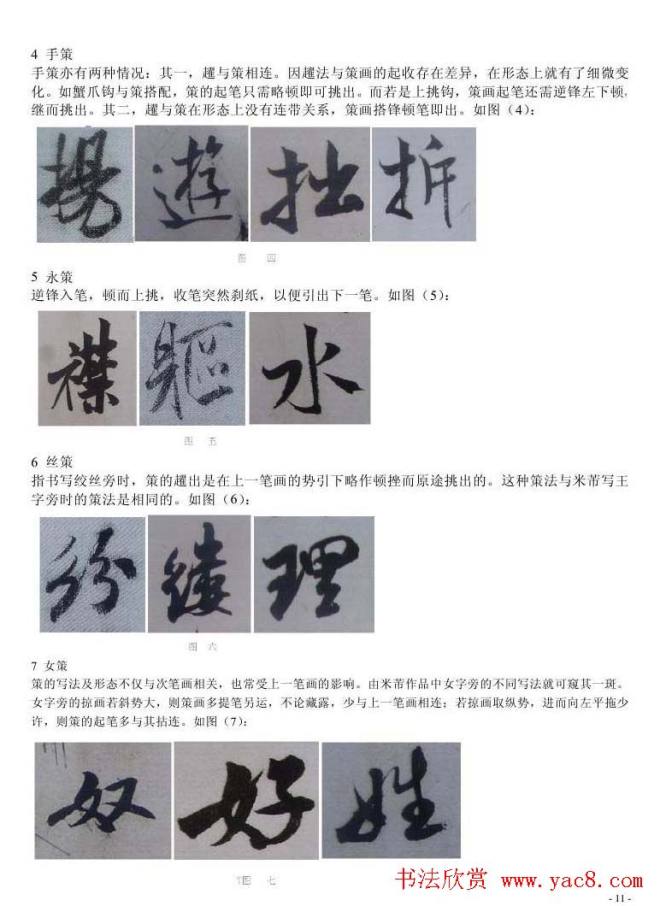 4 手策
手策亦有两种情况：其一，趯与策相连。因趯法与策画的起收存在差异，在形态上就有了细微变
化。如蟹爪钩与策搭配，策的起笔只需略顿即可挑出。而若是上挑钩，策画起笔还需逆锋左下顿，
继而挑出。其二，趯与策在形态上没有连带关系，策画搭锋顿笔即出。如图（4）：
揚 遊 拙 折
图 四
5 永策
逆锋入笔，顿而上挑，收笔突然刹纸，以便引出下一笔。如图（5）：
襟 軀 水
图 五
6 丝策
指书写绞丝旁时，策的趯出是在上一笔画的势引下略作顿挫而原途挑出的。这种策法与米芾写王
字旁时的策法是相同的。如图（6）：
纷 缕 理
图 六
7 女策
策的写法及形态不仅与次笔画相关，也常受上一笔画的影响。由米芾作品中女字旁的不同写法就可窥其一斑。
女字旁的掠画若斜势大，则策画多提笔另运，不论藏露，少与上一笔画相连；若掠画取纵势，进而向左平拖少
许，则策的起笔多与其拈连。如图（7）：
奴 好 姓
图 七
书法欣赏 www.yac8.com
- 11 -